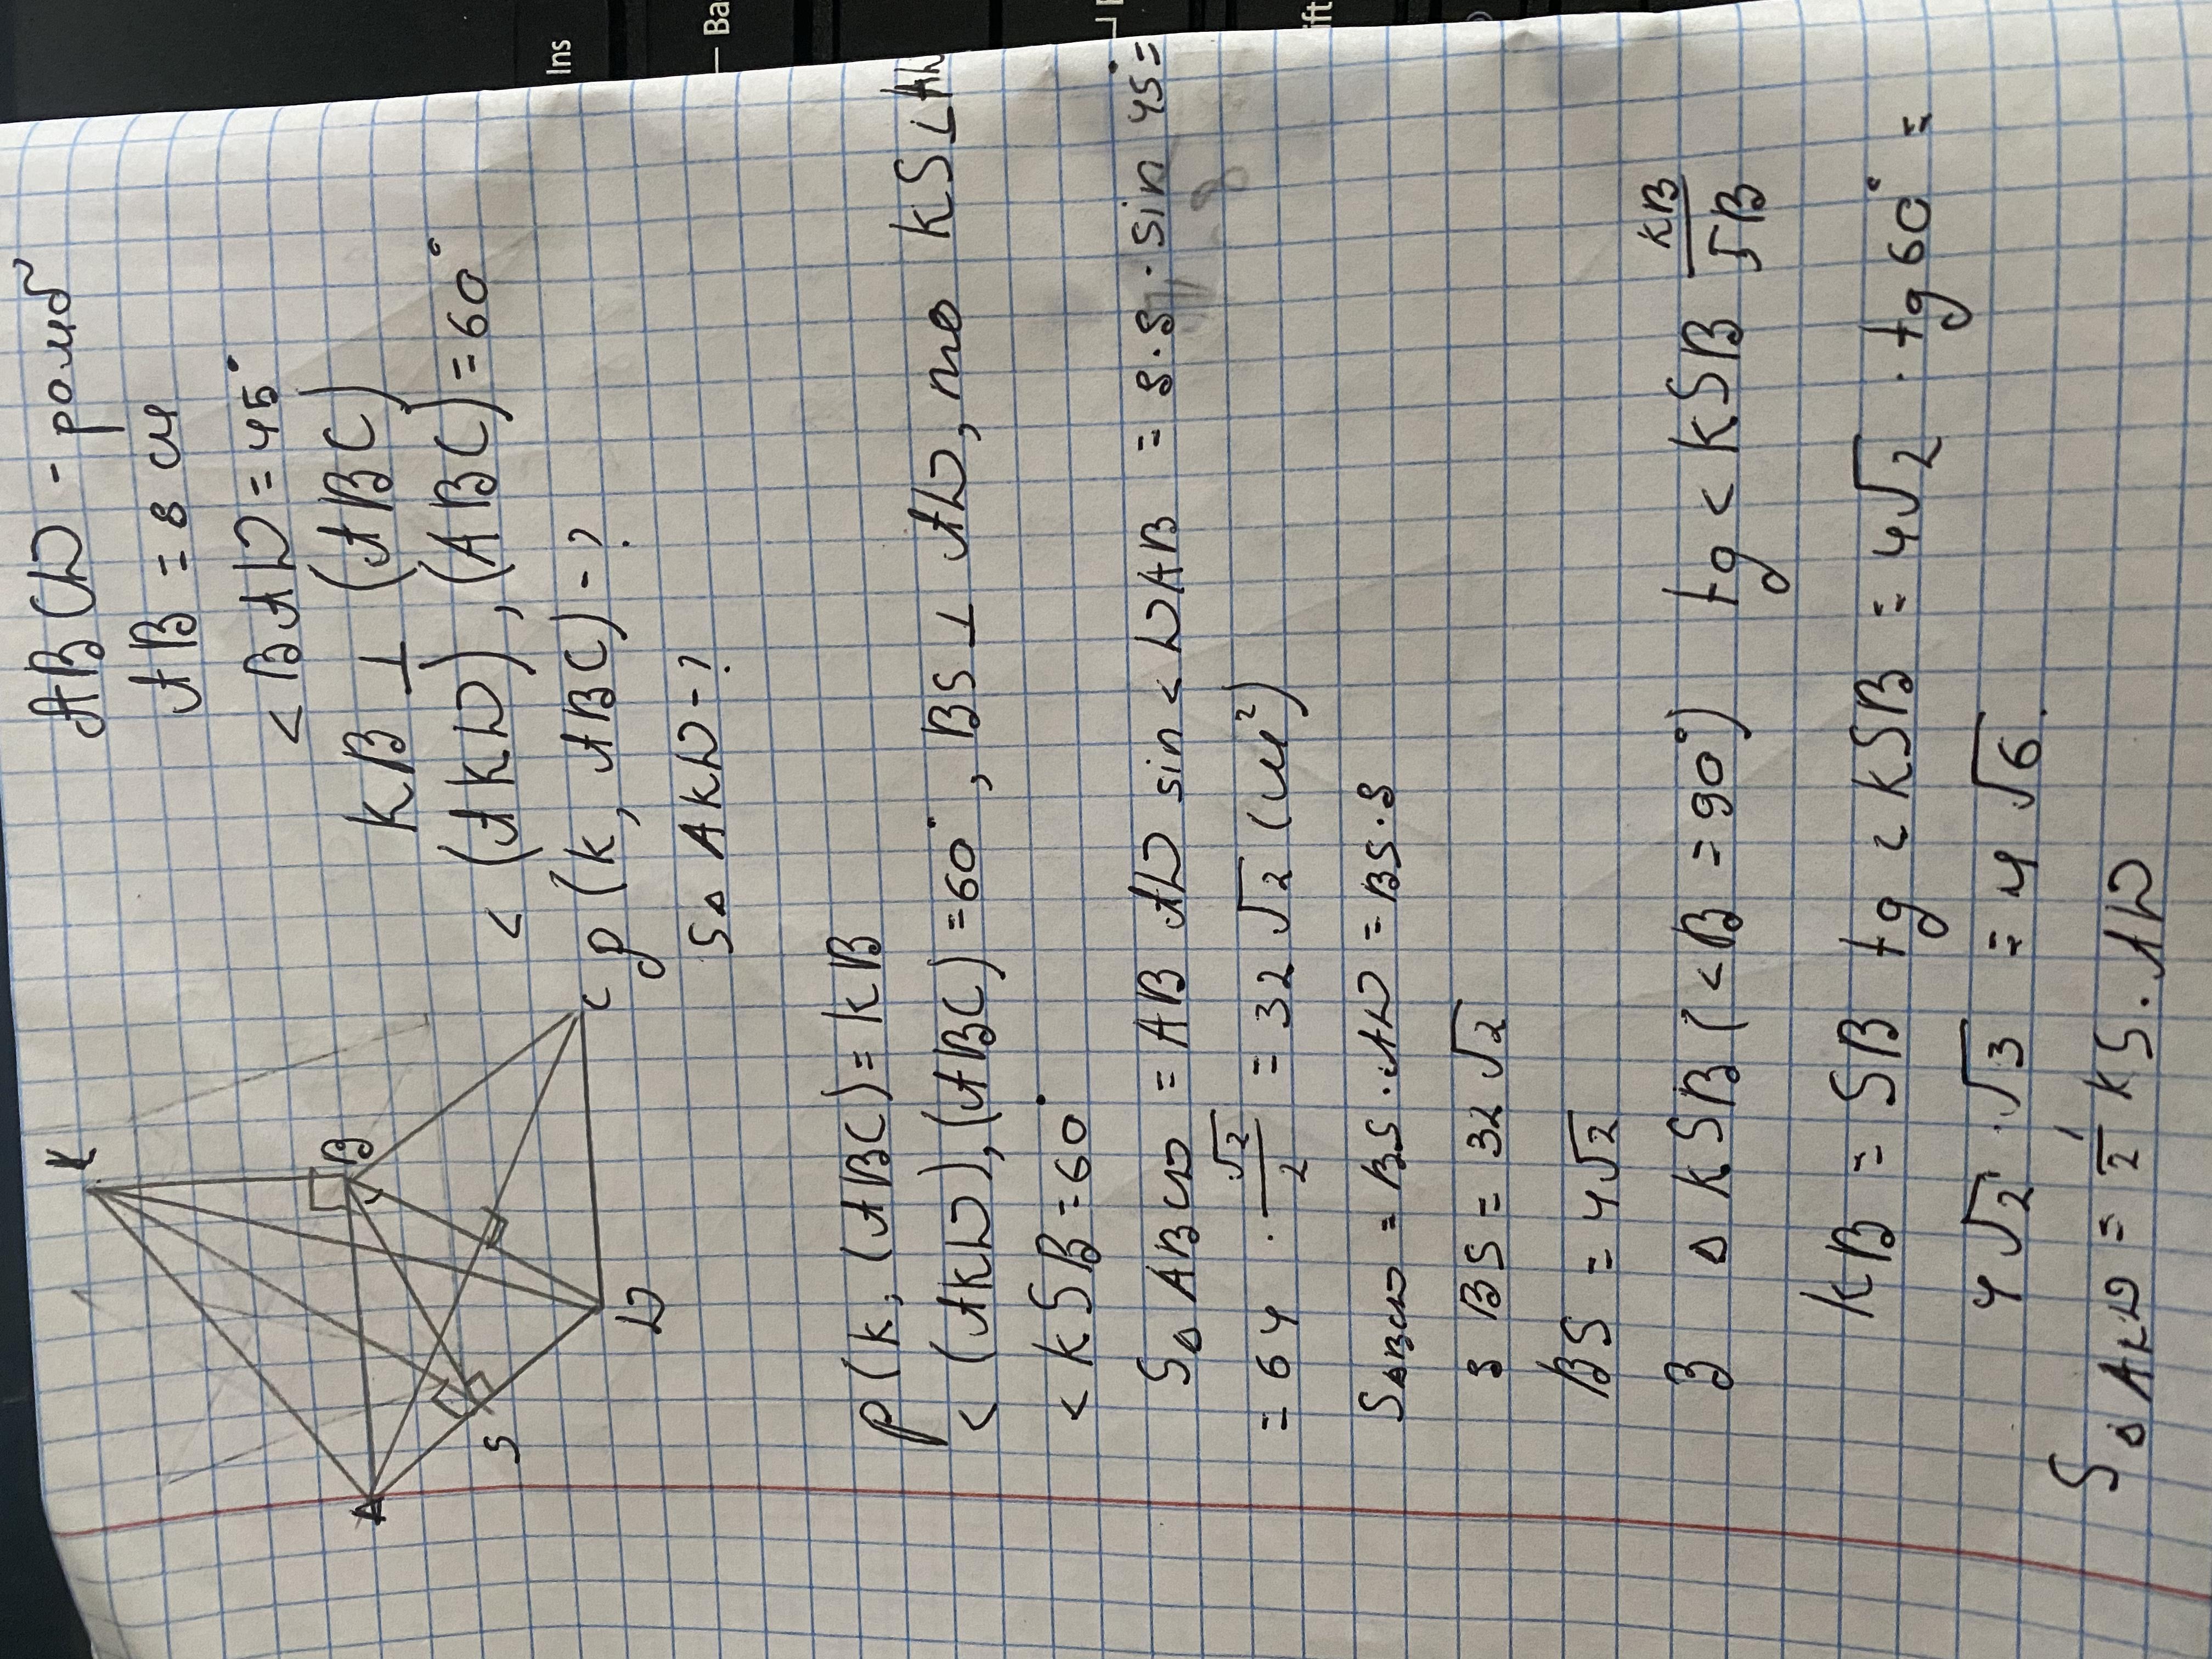 ABCD - ромб
AB = 8 см
< BAD = 45°
KB ⊥ (ABC)
< (AKD), (ABC) = 60°
ρ (K, ABC) - ?
S△ AKD - ?
K
B
A
C
S
D
ρ (K, (ABC) = KB
< (AKD), (ABC) = 60°, BS ⊥ AD, то KS ⊥ AD
< KSB = 60°
S△ ABCD = AB AD sin < DAB = 8 · 8 · sin 45° =
= 64 · √2/2 = 32 √2 (см²)
S△BCD = BS · AD = BS · 8
8 BS = 32 √2
BS = 4√2
З △ KSB (<B = 90°) tg < KSB KB/SB
KB = SB tg < KSB = 4√2 · tg 60° =
4√2 · √3 = 4 √6.
S△ AKD = 1/2 KS · AD
Ins
Ba
ift